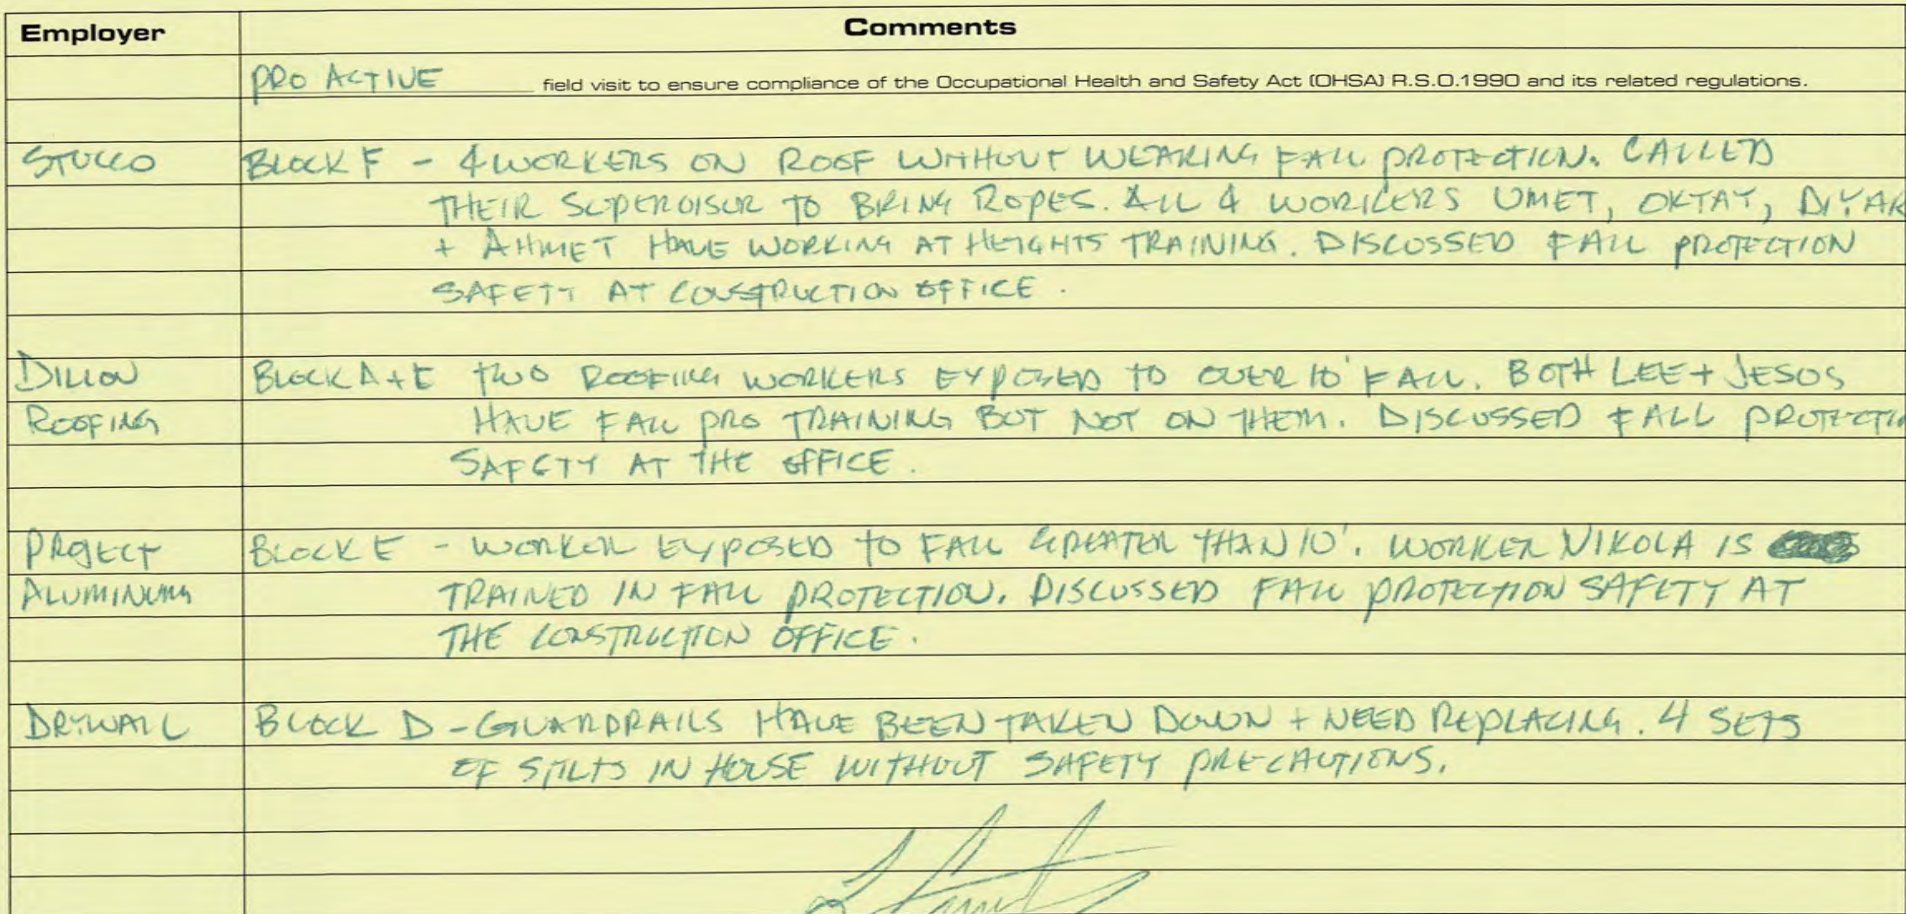 Employer Comments
PRO ACTIVE field visit to ensure compliance of the Occupational Health and Safety Act (OHSA) R.S.O.1990 and its related regulations.
STUCCO BLOCK F - 4 WORKERS ON ROOF WITHOUT WEARING FALL PROTECTION. CALLED
THEIR SUPERVISOR TO BRING ROPES. ALL 4 WORKERS UMET, OKTAY, DIYAR
+ AHMET HAVE WORKING AT HEIGHTS TRAINING. DISCUSSED FALL PROTECTION
SAFETY AT CONSTRUCTION OFFICE.
DILLON BLOCK A + E TWO ROOFING WORKERS EXPOSED TO OVER 10' FALL. BOTH LEE + JESOS
ROOFING HAVE FALL PRO TRAINING BUT NOT ON THEM. DISCUSSED FALL PROTECTIO
SAFETY AT THE OFFICE.
PROJECT BLOCK E - WORKER EXPOSED TO FALL GREATER THAN 10'. WORKER NIKOLA IS
ALUMINUM TRAINED IN FALL PROTECTION. DISCUSSED FALL PROTECTION SAFETY AT
THE CONSTRUCTION OFFICE.
DRYWALL BLOCK D - GUARDRAILS HAVE BEEN TAKEN DOWN + NEED REPLACING. 4 SETS
OF STILTS IN HOUSE WITHOUT SAFETY PRECAUTIONS.